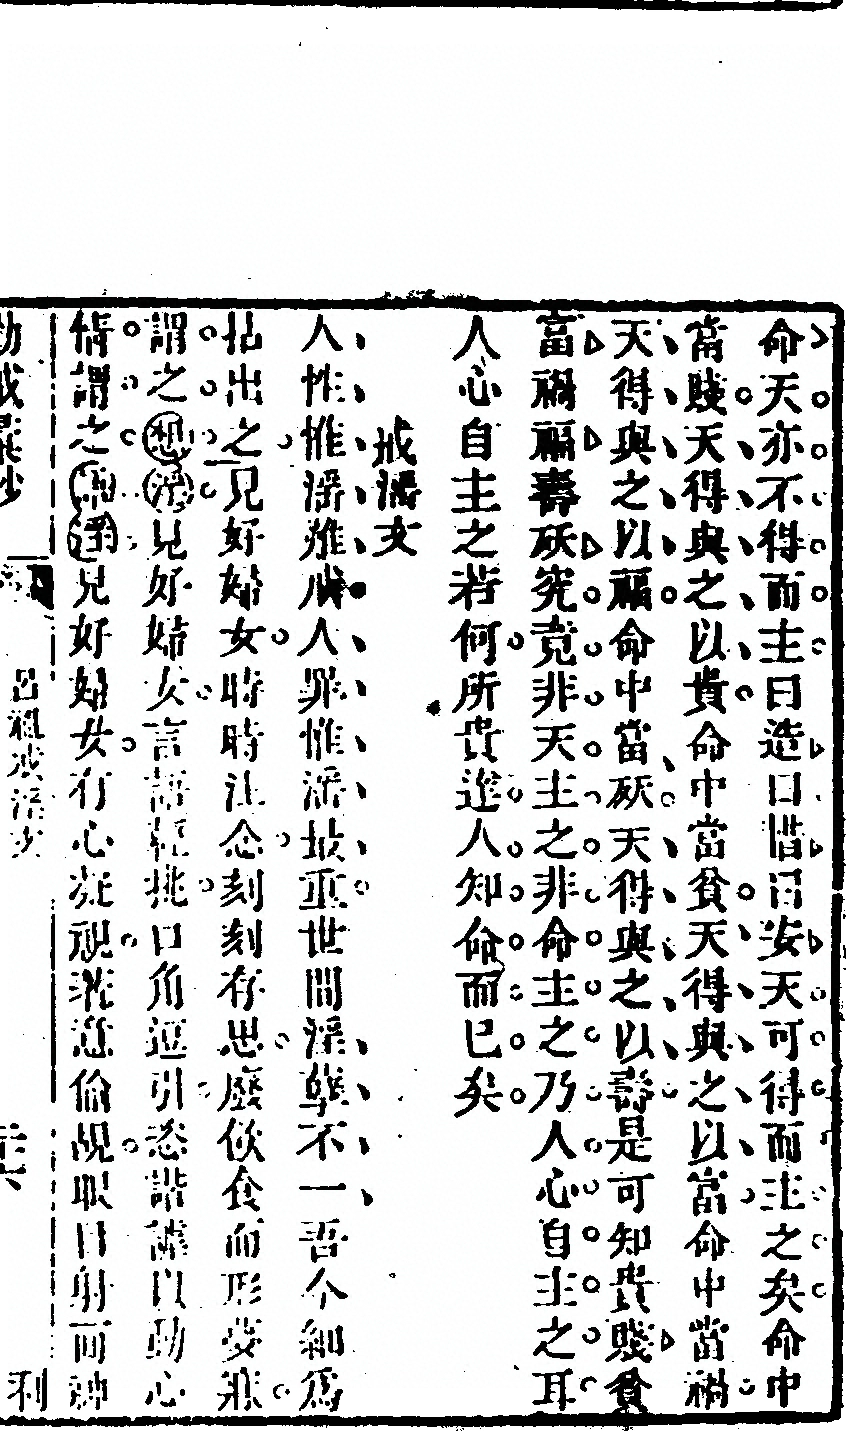 命天亦不得而主曰造曰惜曰安天可得而主之矣命中
當賤天得與之以貴命中當貧天得與之以富命中當禍
天得與之以福命中當殀天得與之以壽是可知貴賤貧
富禍福壽殀究竟非天主之非命主之乃人心自主之耳
人心自主之若何所貴進人知命而已矣
戒淫文
人性惟淫難戒人罪惟淫最重世間淫孽不一吾今細爲
拈出之見好婦女時時注念刻刻存思廢飲食而形夢寐
謂之想淫見好婦女言語輕挑口角逗引恣諧謔以動心
情謂之語淫見好婦女有心凝視著意偷覘眼目射而神
呂祖戒淫文
利